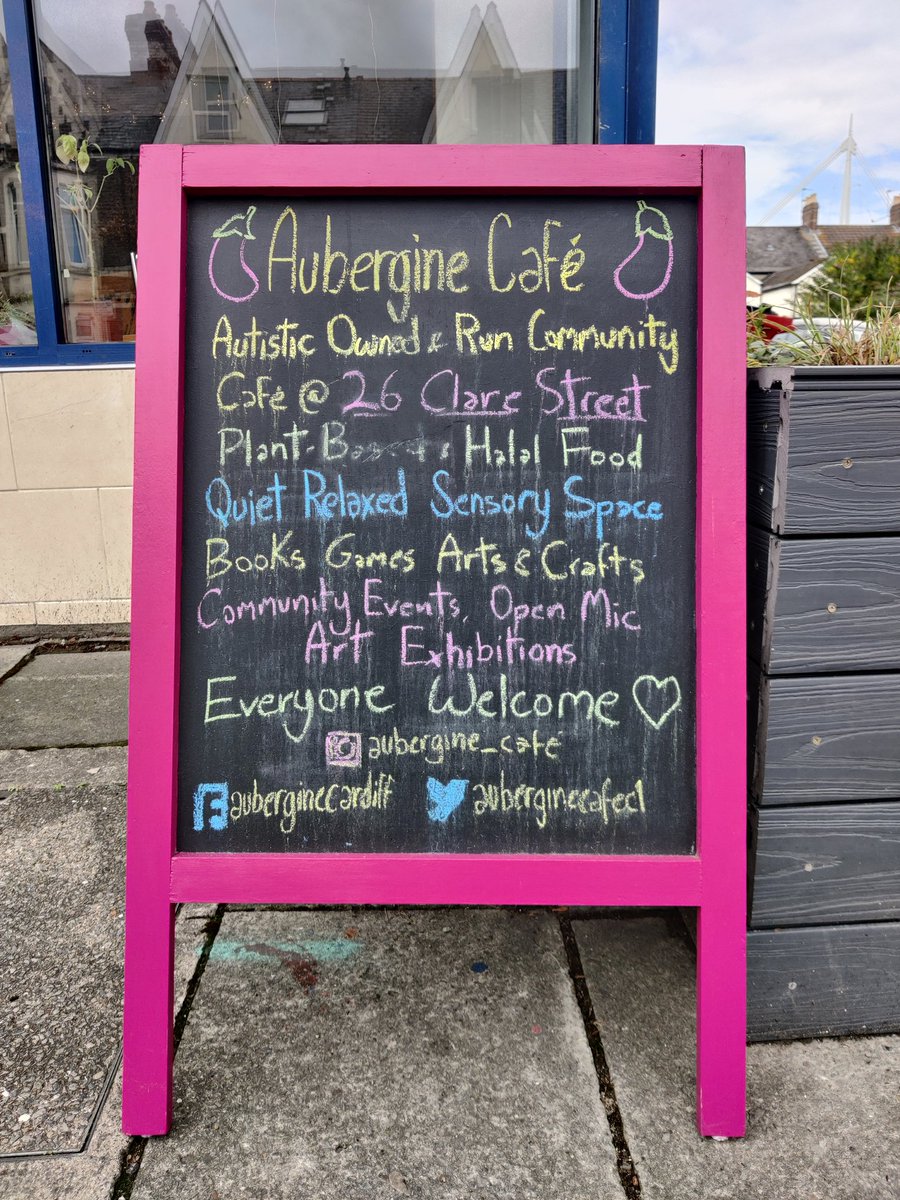 Aubergine Café
Autistic Owned & Run Community
Café @ 26 Clare Street
Plant-Based & Halal Food
Quiet Relaxed Sensory Space
Books Games Arts & Crafts
Community Events, Open Mic
Art Exhibitions
Everyone Welcome
aubergine_cafe
auberginecardiff
auberginecafecl